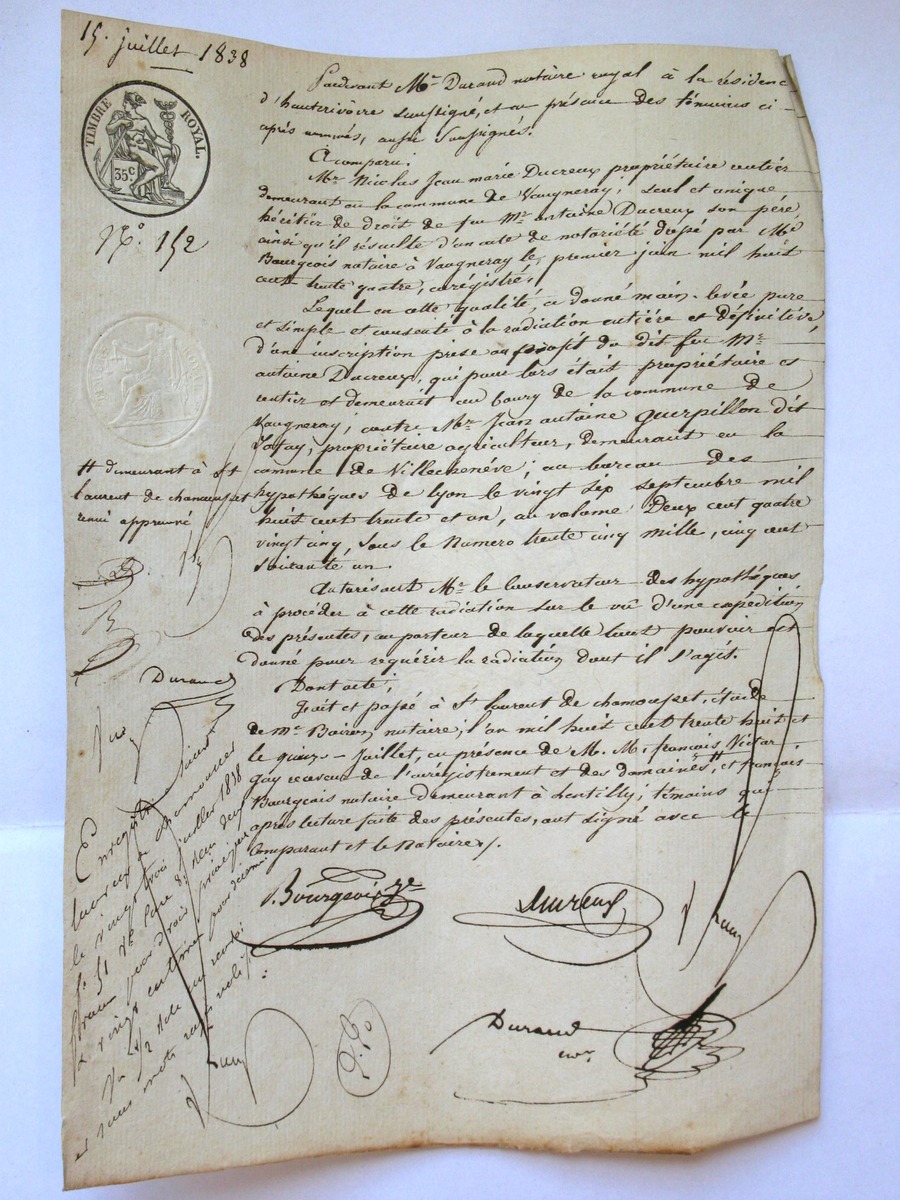 15. juillet 1838
TIMBRE ROYAL.
35c
No. 152
Pardevant Me Durand notaire royal à la résidence
d'hauterivoire soussigné, et en présence des témoins ci-
après nommés, aussi soussignés.
A comparu:
Mr Nicolas Jean marie Ducreux propriétaire rentier
demeurant en la commune de Vaugneray; seul et unique
héritier de droit de feu Mr antoine Ducreux son père,
ainsi qu'il résulte d'un acte de notoriété dressé par Me
Bourgeois notaire à Vaugneray le premier juin mil huit
cent trente quatre, enrégistré,
Lequel en cette qualité, a donné main-levée pure
et simple et consenti à la radiation entière et définitive
d'une inscription prise au profit du dit feu Mr
antoine Ducreux, qui pour lors était propriétaire et
rentier et demeurait au bourg de la commune de
Vaugneray; contre Mr Jean antoine Guerpillon dit
propriétaire agriculteur, demeurant en la
commune de Villechenève; au bureau des
hypothèques de lyon le vingt six septembre mil
huit cent trente et un, au volume Deux cent quatre
vingt cinq, sous le Numero trente cinq mille, cinq cent
soixante un.
Autorisant Mr le Conservateur des hypothèques
à procéder à cette radiation sur le vû d'une expédition
des présentes, au porteur de laquelle tout pouvoir est
donné pour requérir la radiation dont il s'agit.
Dont acte;
Fait et passé à St laurent de chamousset, étude
de me Boiron notaire; l'an mil huit cent trente huit et
le quinze Juillet, en présence de M. M. françois Victor
gay receveur de l'enrégistrement et des domaines, tt et françois
Bourgeois notaire demeurant à Lentilly; témoins qui
après lecture faite des présentes, ont signé avec le
Comparant et le Notaire./.
tt demeurant à St
laurent de chamousset
renvi approuvé
Durand
Enregistré à Saint
laurent de chamousset
le vingt trois juillet 1838
fo 51 Vo Case 8. Reçu deux
francs pour droit principal
& vingt centimes pour décime
et sans mots rayés nuls
f. Bourgeois
Ducreux
Durand
nore